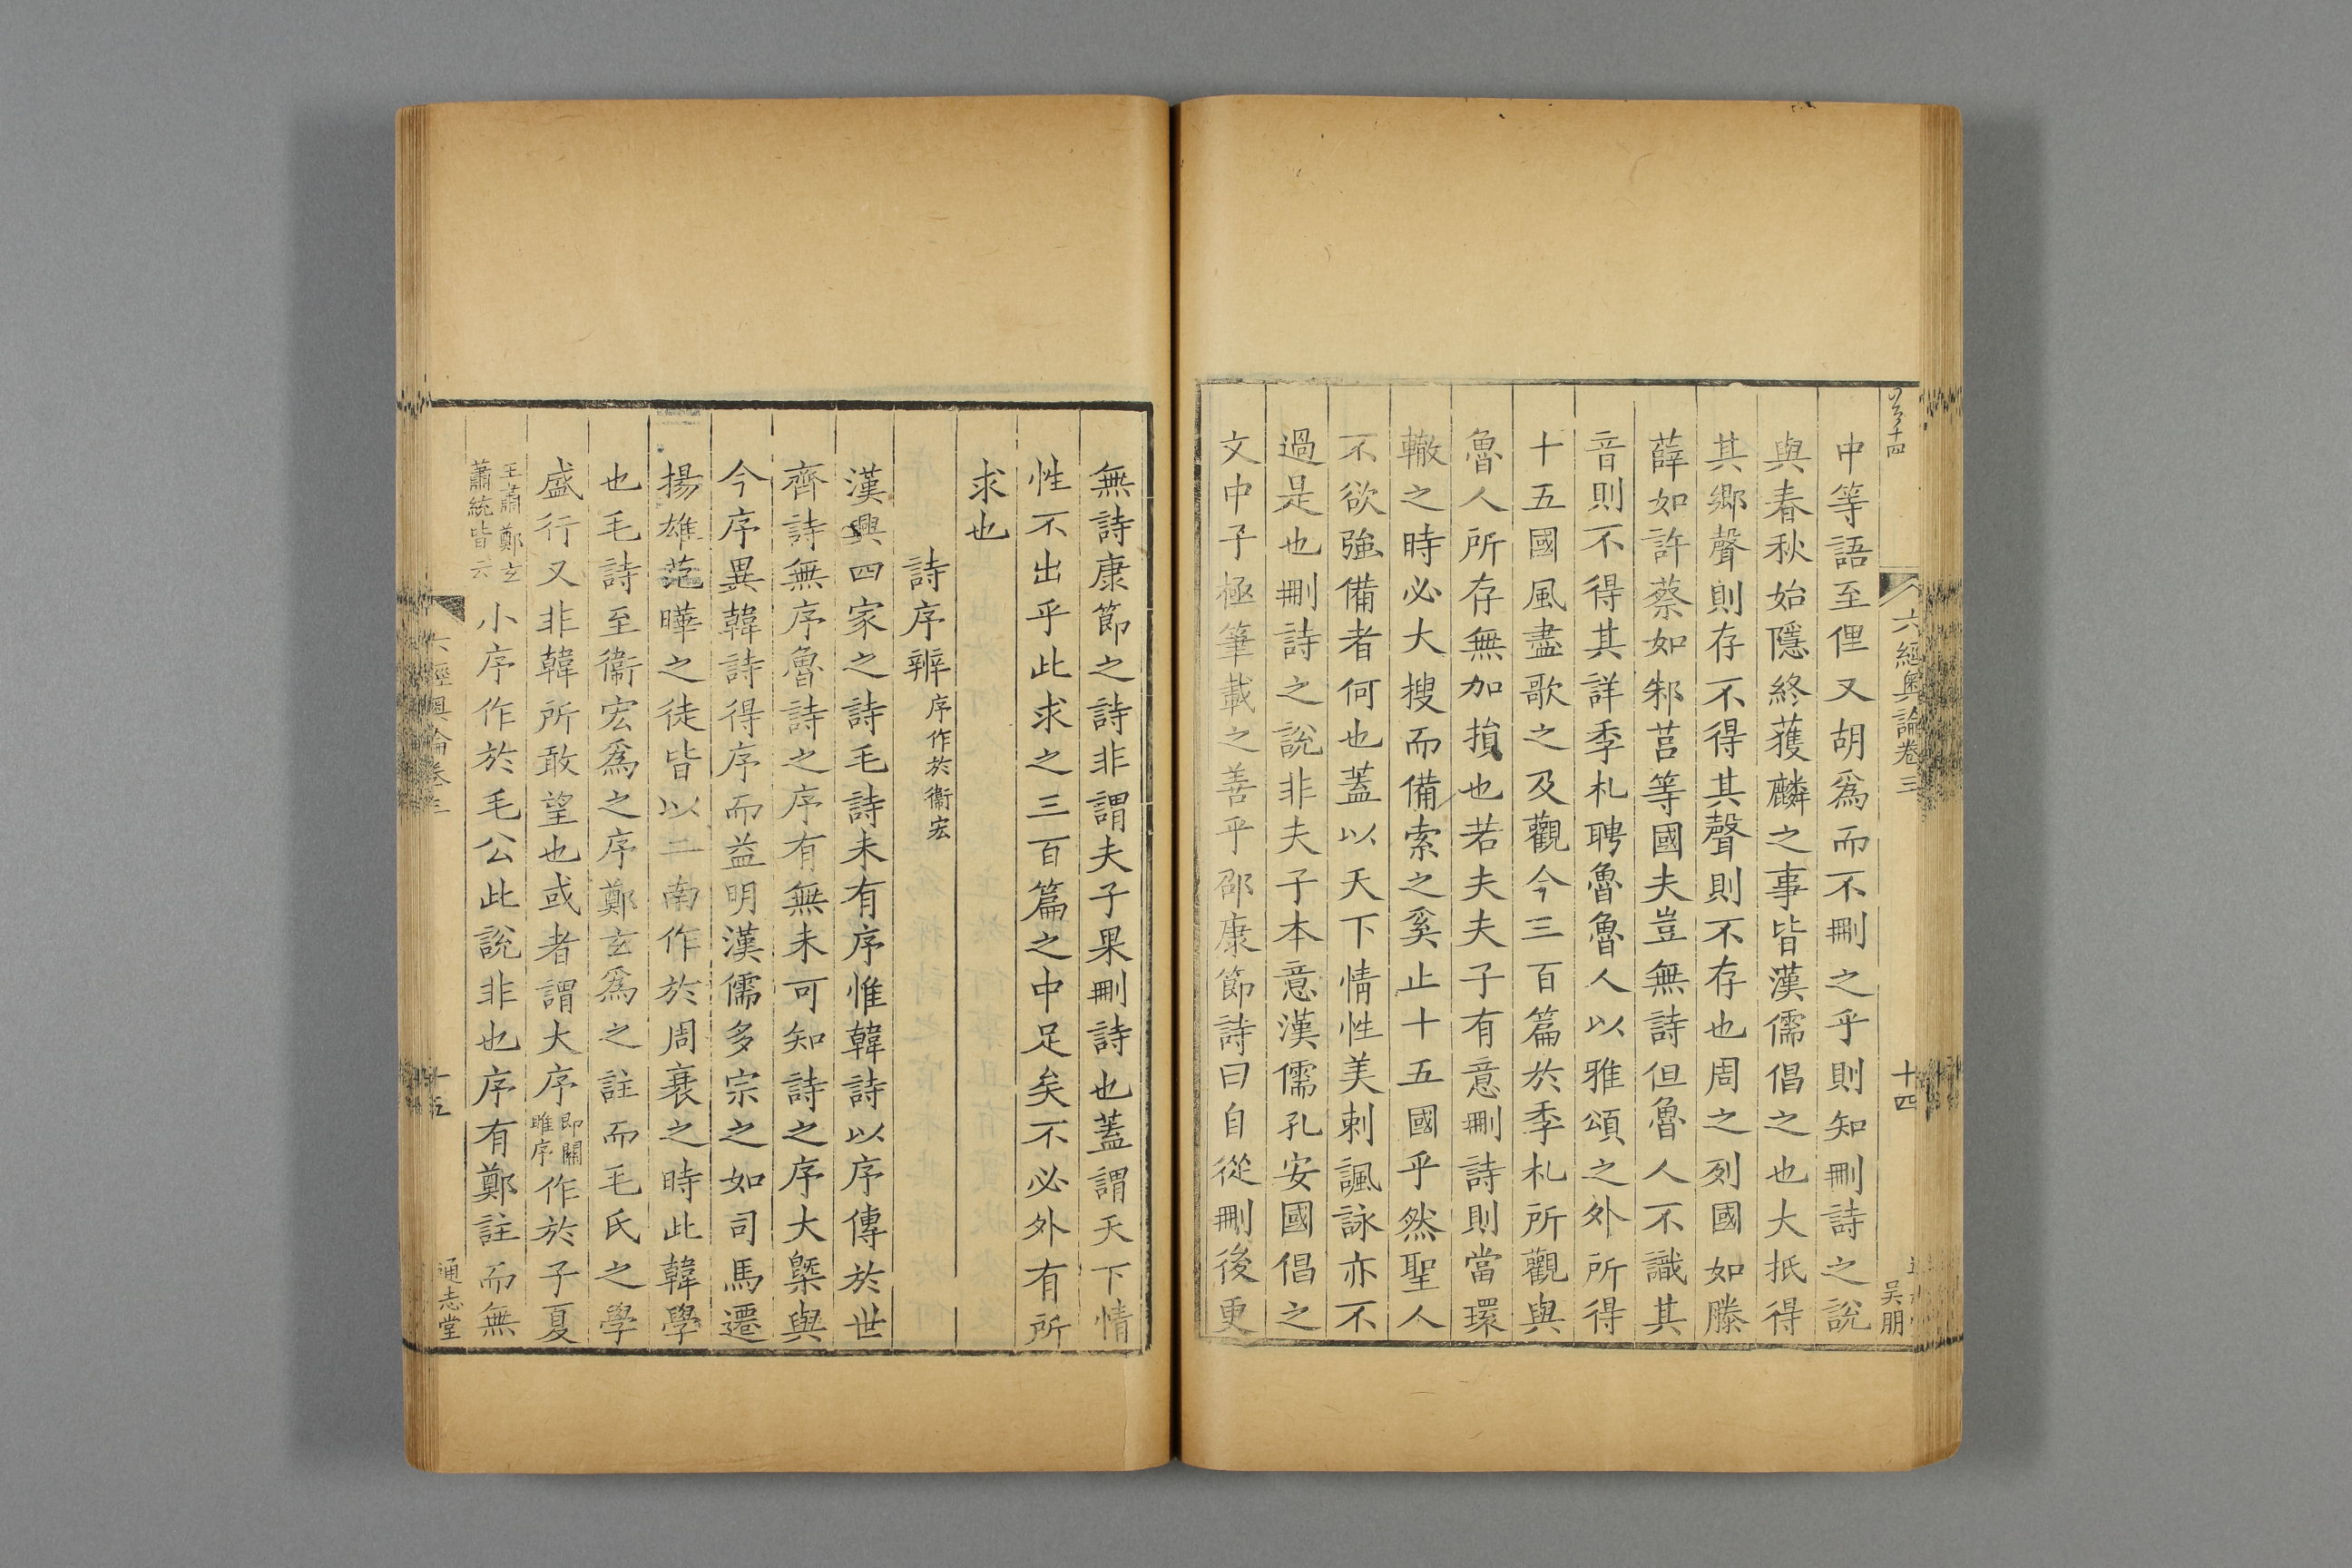 六經奧論卷三
十四
吴朋
中等語至俚又胡爲而不刪之乎則知刪詩之說
與春秋始隱終獲麟之事皆漢儒倡之也大抵得
其鄉聲則存不得其聲則不存也周之列國如滕
薛如許蔡如邾莒等國夫豈無詩但魯人不識其
音則不得其詳季札聘魯魯人以雅頌之外所得
十五國風盡歌之及觀今三百篇於季札所觀與
魯人所存無加損也若夫夫子有意刪詩則當環
轍之時必大搜而備索之奚止十五國乎然聖人
不欲強備者何也蓋以天下情性美刺諷詠亦不
過是也刪詩之說非夫子本意漢儒孔安國倡之
文中子極筆載之善乎邵康節詩曰自從刪後更
無詩康節之詩非謂夫子果刪詩也蓋謂天下情
性不出乎此求之三百篇之中足矣不必外有所
求也
詩序辨序作於衞宏
漢興四家之詩毛詩未有序惟韓詩以序傳於世
齊詩無序魯詩之序有無未可知詩之序大槩與
今序異韓詩得序而益明漢儒多宗之如司馬遷
揚雄范曄之徒皆以二南作於周衰之時此韓學
也毛詩至衞宏爲之序鄭玄爲之註而毛氏之學
盛行又非韓所敢望也或者謂大序即關雎序作於子夏
王肅鄭玄蕭統皆云小序作於毛公此說非也序有鄭註而無
六經奧論卷三
十五
通志堂